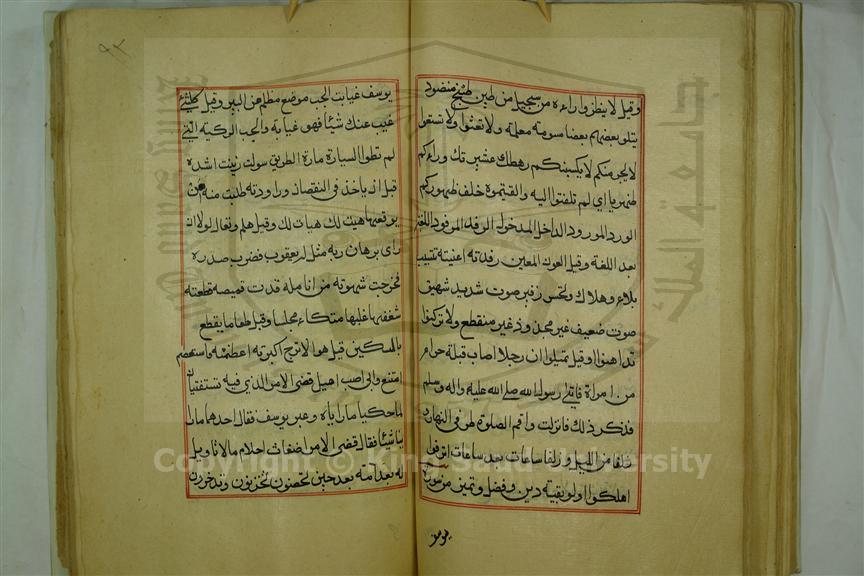 وقيل لا ينظر وراءه من سجيل من طين طبخ منضود
يتلو بعضهم بعضا مسومة معلمة ولا تعثوا ولا تسعوا
لا يجرمنكم لا يكسبنكم رهطك عشيرتك وراءكم
ظهريا اي لم تلفتوا اليه والقيتموه خلف ظهوركم
الورد المورود الداخل المدخول الرفد المرفود اللغة
بعد اللغة وقيل العون المعين رفدته اعنيته تتبيب
بلاء وهلاك وتخسير زفير صوت شديد شهيق
صوت ضعيف غير مجذوذ غير منقطع ولا تركنوا
تداهنوا وقيل تميلوا ان رجلا اصاب قبلة حرام
من امراة فاتى رسول الله صلى الله عليه واله وسلم
فذكر ذلك فانزلت واقم الصلوة طرفي النهار
زلفا من الليل وزلفا ساعات بعد ساعات اترفوا
اهلكوا اولو بقية دين وفضل وتميز من سورة
يوسف
يوسف غيابت الجب موضع مظلم من البير وقيل كل شئ
غيب عنك شيئا فهو غيابة والجب الركية التي
لم تطوا السيارة مارة الطريق سولت زينت اشده
قبل ان ياخذ في النقصان وراودته طلبت منه ان
يوقعها هيت لك هيات لك وقيل هلم وتعال لولا ان
راى برهان ربه مثل له يعقوب فضرب صدره
فخرجت شهوته من انامله قدت قميصه قطعته
شغفها غلبها متكاء مجلسا وقيل طعاما يقطع
بالسكين قيل هو الاترج اكبرنه اعظمنه واستعصم
امتنع وابى اصب اميل قضى الامر الذي فيه تستفتيان
لما حكيا ما راياه وعبر يوسف فقال احدهما ما را
ينا شئا فقال قضى الامر اضغاث احلام مالا تاويل
له بعد امة بعد حين تحصنون تخزنون وتدخرون
Copyright © King Saud University